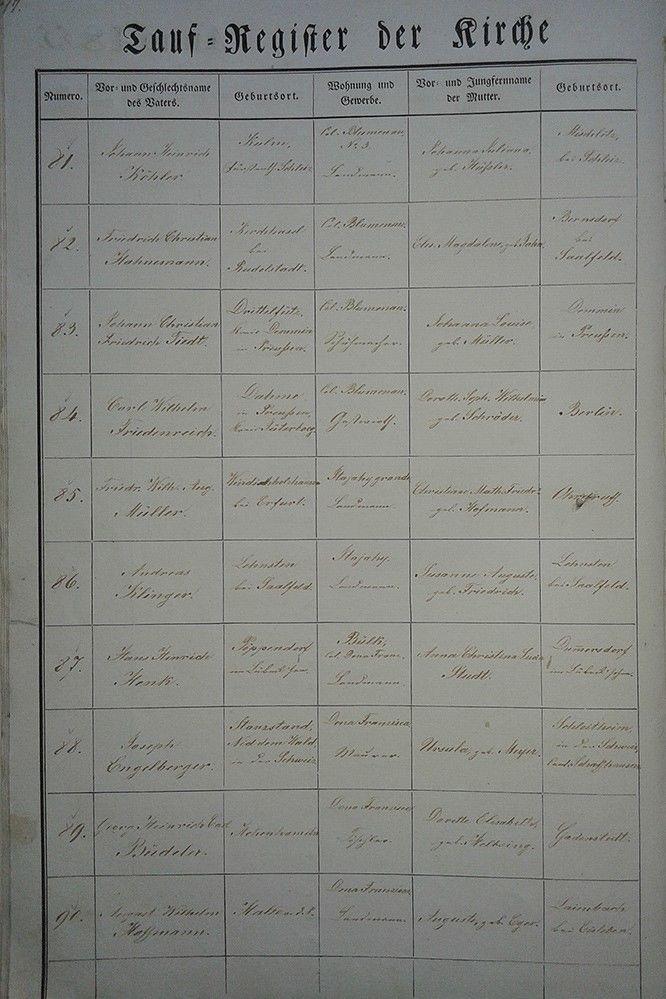 Tauf-Register der Kirche
Numero.
Vor- und Geschlechtsname
des Vaters.
Geburtsort.
Wohnung und
Gewerbe.
Vor- und Jungfernname
der Mutter.
Geburtsort.
81.
Johann Heinrich
Köhler.
Kulm,
Col. Blumenau,
No 3.
Landmann.
Johanna Juliana,
bei Schleiz.
82.
Friedrich Christian
Hahnemann.
Kirchhasel
bei
Rudolstadt.
Col. Blumenau.
Landmann.
Els. Magdalene, geb.
Bernsdorf
bei
Saalfeld.
83.
Johann Christian
Friedrich Tiedt.
Kreis Demmin
in Preußen.
Col. Blumenau.
Schuhmacher.
Johanna Louise
geb. Müller.
Demmin
in Preußen.
84.
Carl Wilhelm
Friedenreich.
Dahme
in Preußen,
Kreis Jüterbog.
Col. Blumenau.
Gastwirth.
Doroth. Soph. Wilhelmine
geb. Schröder.
Berlin.
85.
Friedr. Wilh. Aug.
Müller.
Windischholzhausen
bei Erfurt.
Itajahy grande,
Landmann.
Christiane Math. Friedr.
geb. Hofmann.
86.
Andreas
Klinger.
Lehnsten
bei Saalfeld.
Itajahy.
Landmann.
Susanne Auguste,
geb. Friedrich.
Lehnsten
bei Saalfeld.
87.
Hans Hinrich
Henk.
Pöppendorf
im Lübeckschen.
Col. Dona Franc.
Landmann.
Anna Christina
Studt.
Dummersdorf
im Lübeckschen.
88.
Joseph
Engelberger.
Stanzstand,
Nid dem Wald
in der Schweiz.
Dona Francisca
Maurer.
Ursula, geb. Meyer.
in der Schweiz,
Cant. Schaffhausen
89.
Georg Heinrich Carl
Büddeler.
Hohenhameln
Dona Francisca
Tischler.
Dorette Elisabeth,
Gadenstedt.
90.
August Wilhelm
Hoffmann.
Dona Francisca
Landmann.
Auguste, geb. Eger.
bei Eisleben.